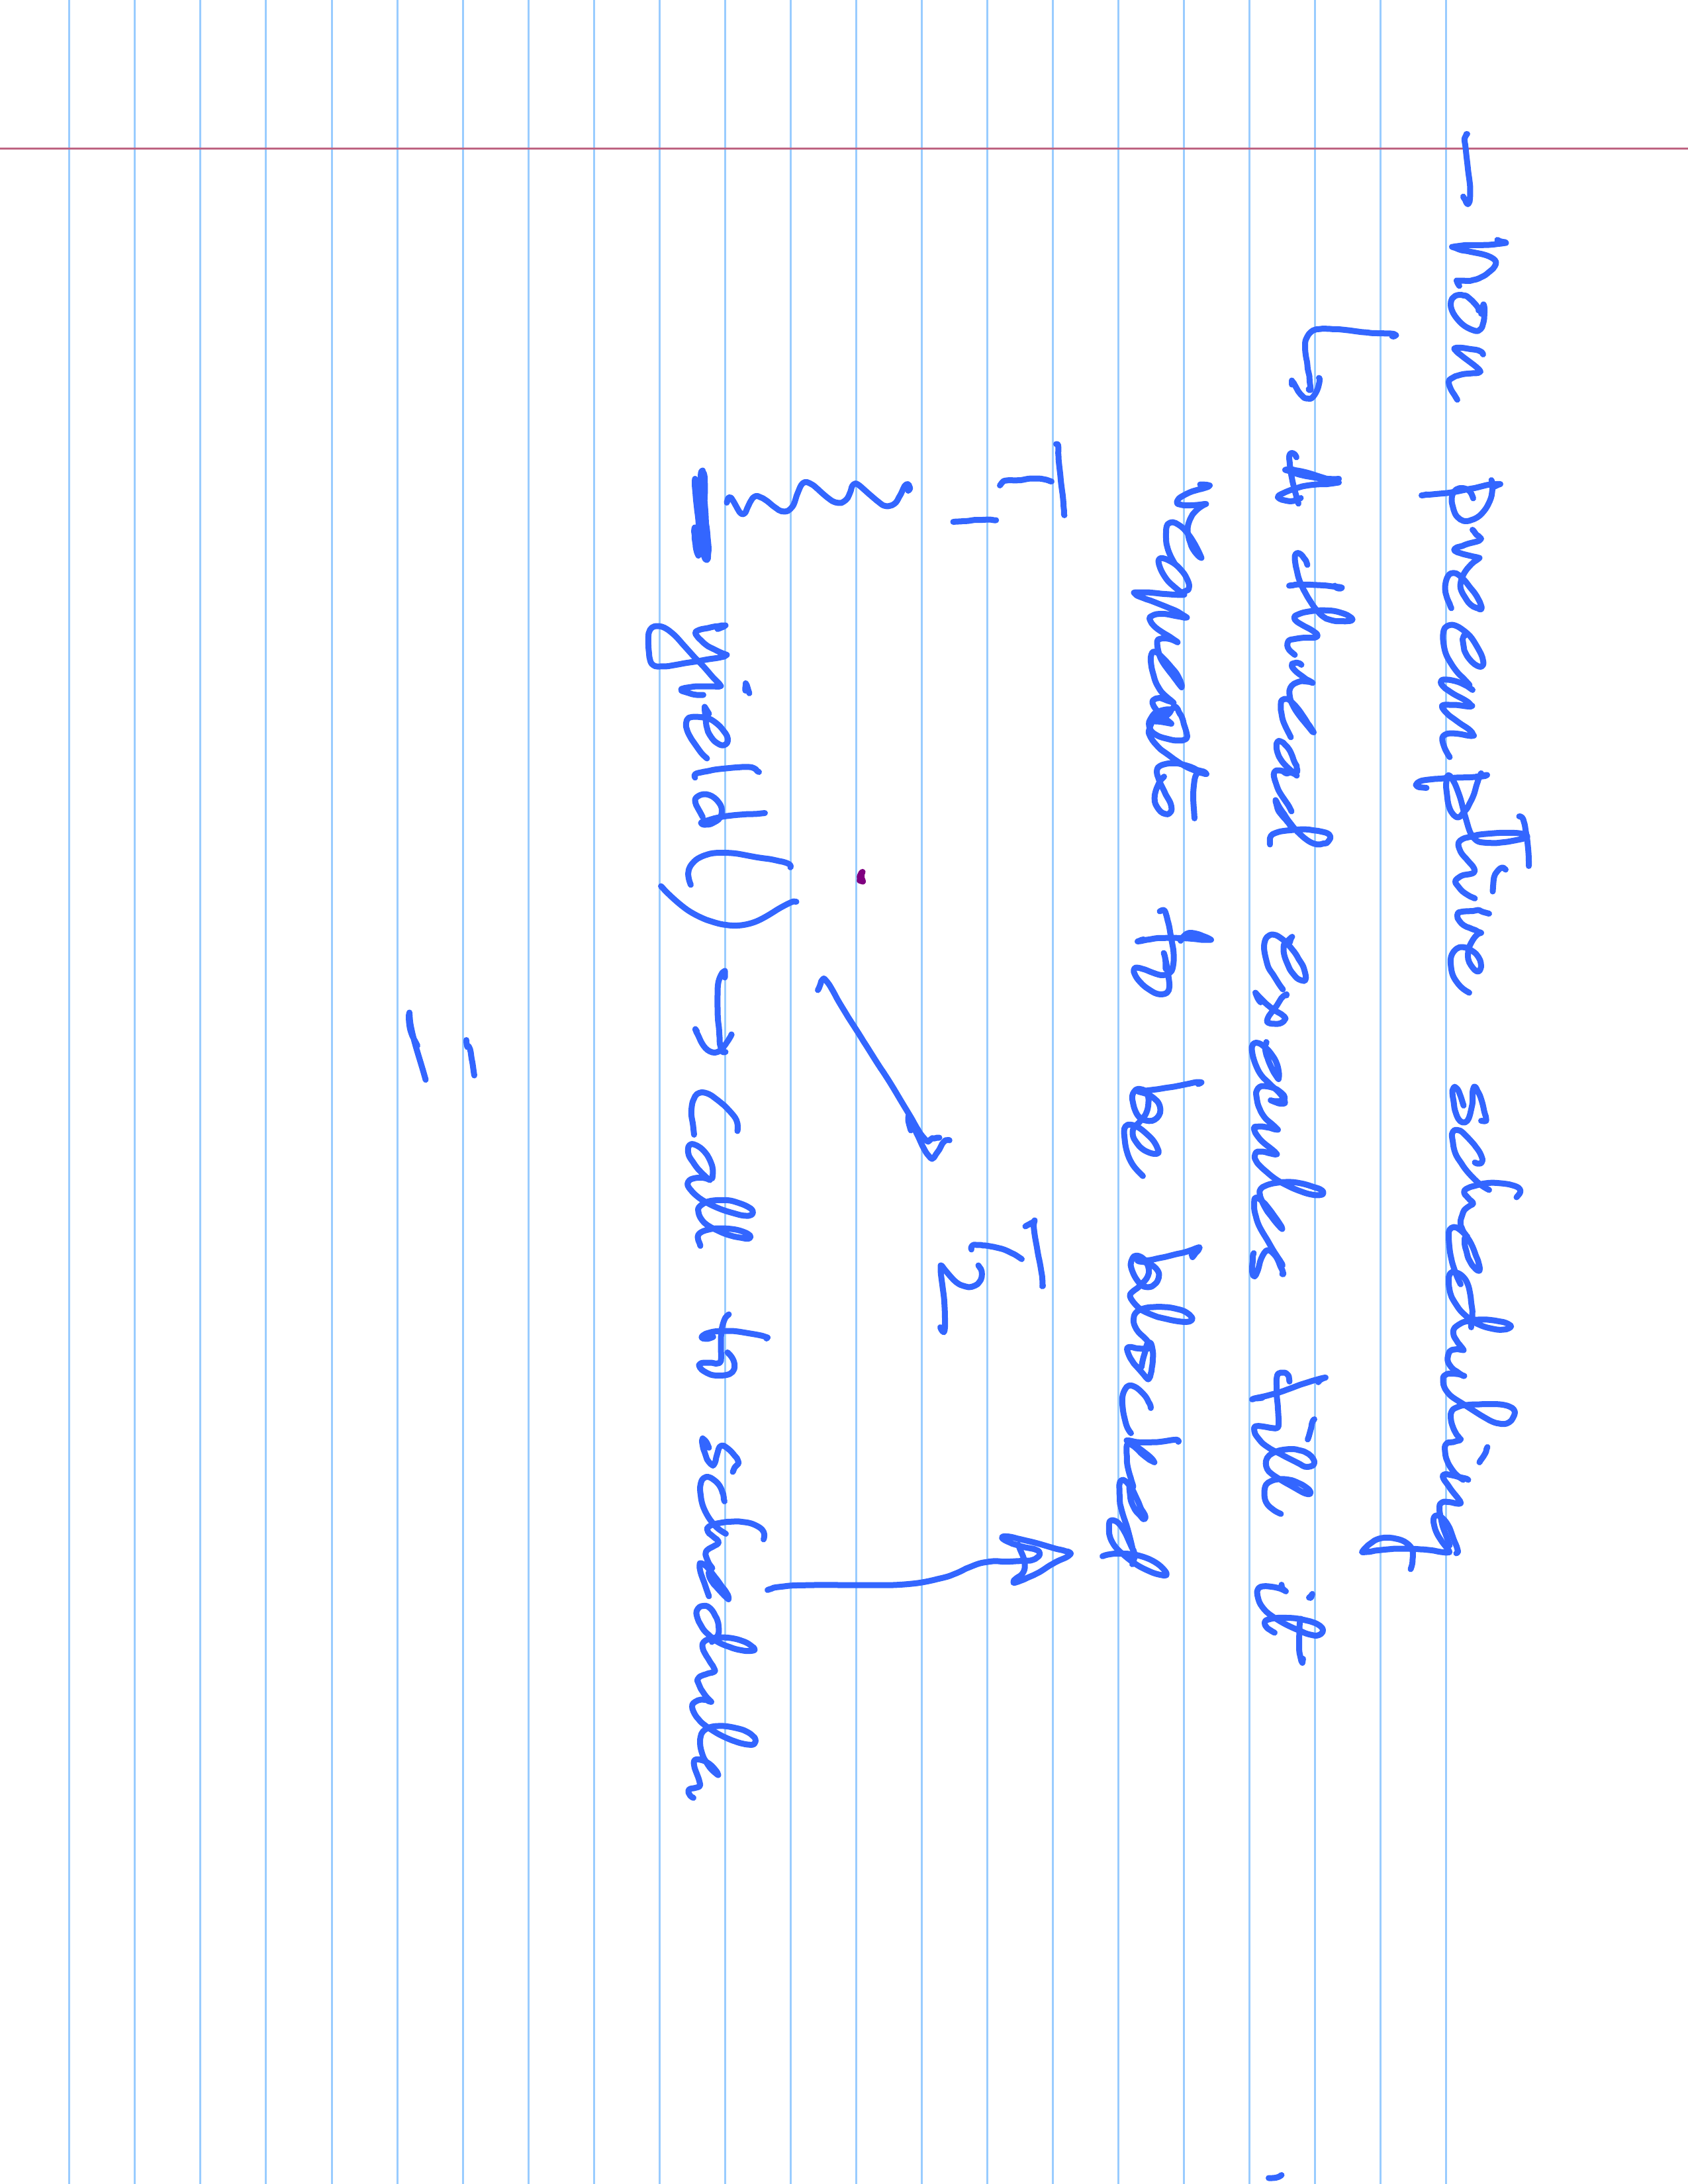 → non preemptive scheduling
↳ A thread executes till it
requests to be blocked
T1 T2
yield() → Call to scheduler